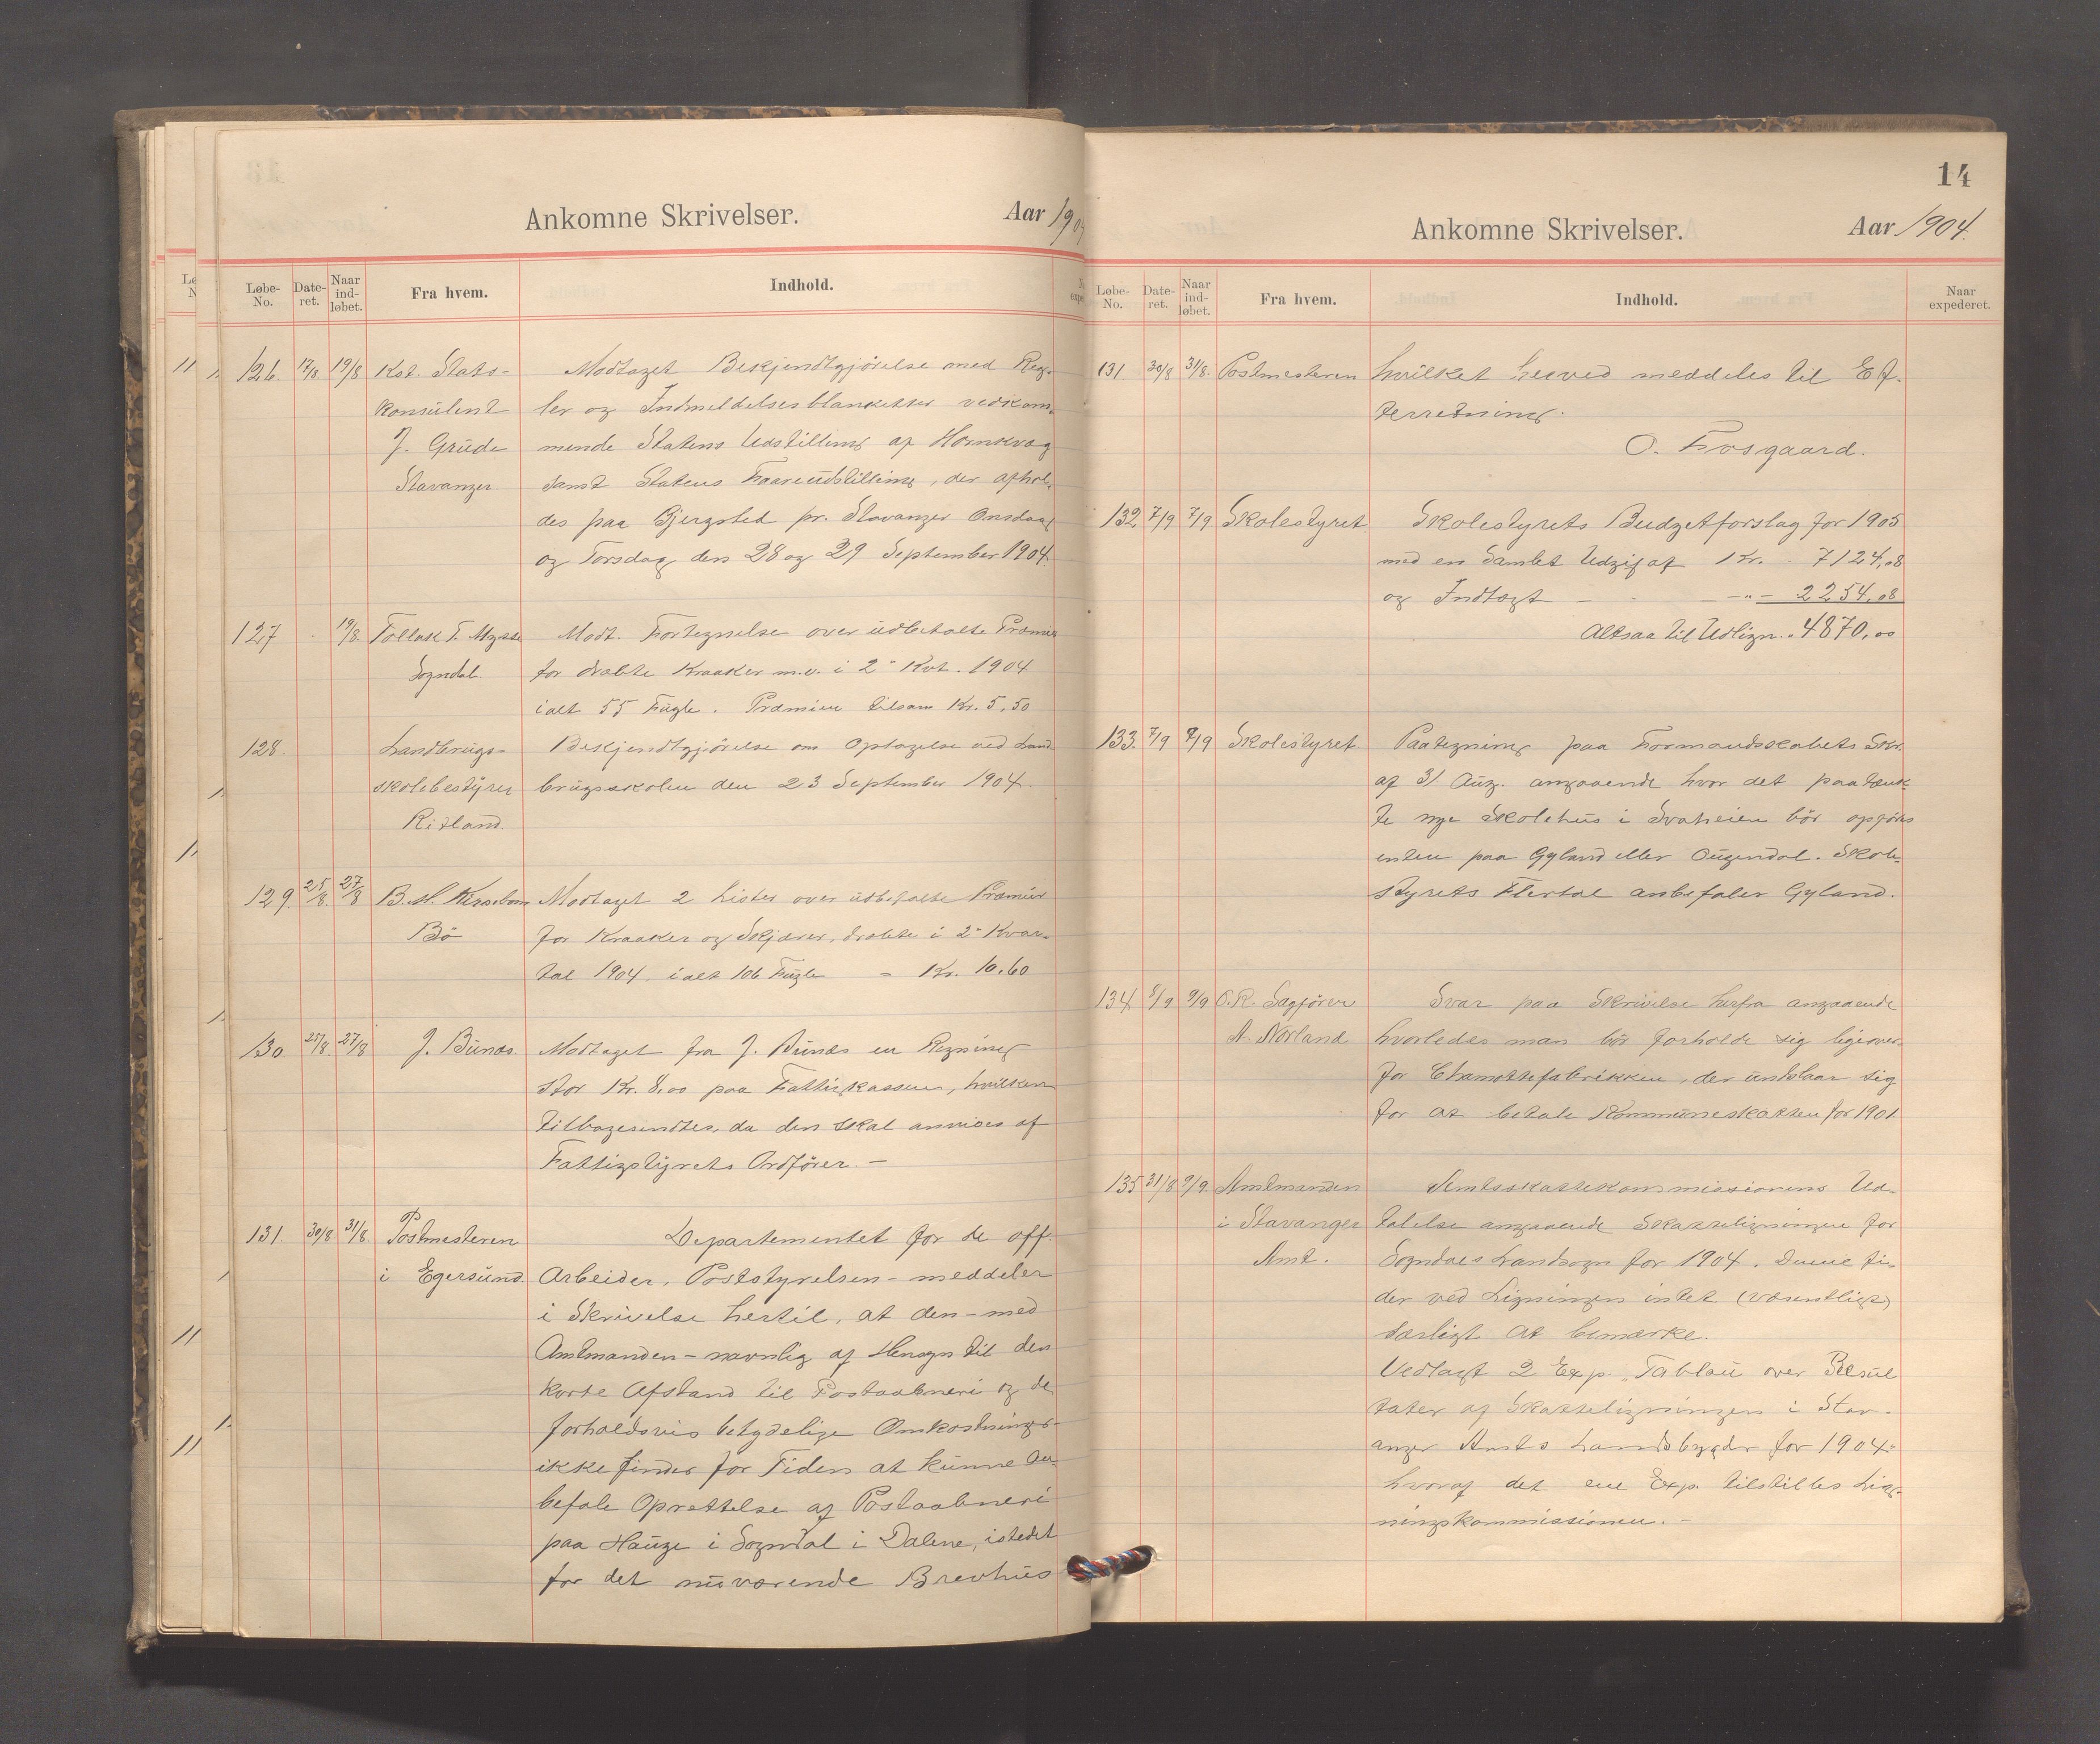 Ankomne Skrivelser.
Aar 1904
Løbe-No.
Date-ret.
Naar ind-løbet.
Fra hvem.
Indhold.
126. 17/8. 19/8 Kst. Stats- Modtaget Bekjendtgjörelse med Reg-
konsulent ler og Indmeldelsesblanketter vedkom-
J. Grude mende Statens Udstilling af Hornkvæg
Stavanger. samt Statens Faareudstilling, der afhol-
des paa Bjergsted pr. Stavanger Onsdag
og Torsdag den 28 og 29 September 1904.
127 19/8. Tollak T. Mysse Modt. Fortegnelse over udbetalte Præmier
Sogndal. for dræbte Kraaker m.v. i 2det Kvt. 1904
ialt 55 Fugle. Præmien tilsam Kr. 5,50
128. Landbrugs- Bekjendtgjörelse om Optagelse ved Land-
skolebestyrer brugsskolen den 23 September 1904.
Ritland.
129. 25/8. 27/8 B. M. Modtaget 2 Lister over udbetalte Præmier
Bö for Kraaker og Skjærer, dræbte i 2det Kvar-
tal 1904. ialt 106 Fugle - Kr. 10.60
130 25/8. 27/8 J. Bunds Modtaget fra J. Bunds en Regning
stor Kr. 8,00 paa Fattigkassen, hvilken
tilbagesendtes, da den skal anvises af
Fattigstyrets Ordförer. -
131. 30/8 31/8 Postmesteren Departementet for de off.
i Egersund. Arbeider, Poststyrelsen - meddeler
i Skrivelse hertil, at den - med
Amtmanden - navnlig af Hensyn til den
korte Afstand til Postaabneri og de
forholdsvis betydelige Omkostninger -
ikke finder for Tiden at kunne an-
befale Oprettelse af Postaabneri
paa Hauge i Sogndal i Dalene, istedet
for det nuværende Brevhus
14
Ankomne Skrivelser.
Aar 1904.
Løbe-No.
Date-ret.
Naar ind-løbet.
Fra hvem.
Indhold.
Naar expederet.
131 30/8 31/8. Postmesteren hvilket herved meddeles til Ef-
terretning.
O. Fosgaard.
132 7/9 7/9 Skolestyret Skolestyrets Budgetforslag for 1905
med en Samlet Udgif af Kr. 7124,08
og Indtægt - - -"- 2254,08
Altsaa til Udlign. " 4870,00
133. 7/9 7/9 Skolestyret Paategning paa Formandsskabets Skr.
af 31 Aug. angaaende hvor det paatænk-
te nye Skolehus i Svaheien bör opföres
enten paa Gyland eller Ougendal. Skole-
styrets Flertal anbefaler Gyland.
134. 8/9 9/9 O.R. Sagförer Svar paa Skrivelse herfra angaaende
A. Norland hvorledes man bör forholde sig ligeover-
for Chamottefabrikken, der undslaar sig
for at betale Kommuneskatten for 1901
135 31/8 9/9. Amtmanden Amtsskattekommissionens Ud-
i Stavanger talelse angaaende Skatteligningen for
Amt. Sogndals Landsogn for 1904. Denne fin-
der ved Ligningen intet (væsentligt)
særligt at bemærke.
Vedlagt 2 Exp. Tablau over Resul
tater af Skatteligningen i Stav-
anger Amts Landsbygder for 1904
hvoraf det ene Exp. tilstilles Lig-
ningskommissionen. -